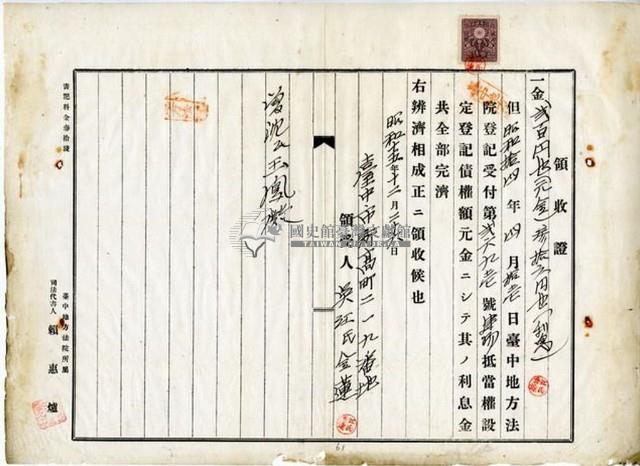 領收證
一金貳百円也(元金)
但昭和拾四年四月拾壱日臺中地方法
院登記受付第貳六九壱號抵當權設
定登記債權額元金ニシテ其ノ利息金
共全部完濟
右辨濟相成正ニ領收候也
昭和十五年十二月二十八日
臺中市高町二一九番地
領收人 吳江氏金蓮
曾沈氏玉鳳殿
書記料金參拾錢
臺中地方法院所屬
司法代書人 賴惠爐
國史館臺灣文獻館
TAIWAN
61